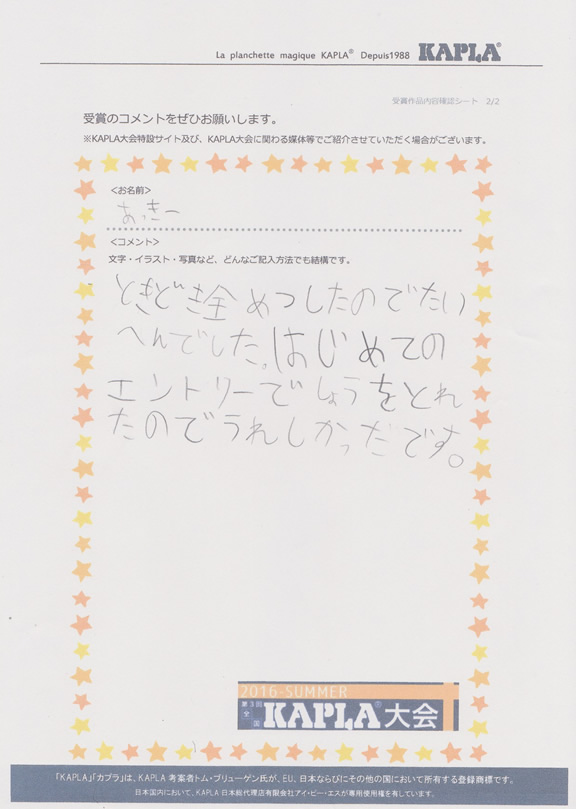 La planchette magique KAPLA® Depuis1988 KAPLA®
受賞作品内容確認シート 2/2
受賞のコメントをぜひお願いします。
※KAPLA大会特設サイト及び、KAPLA大会に関わる媒体等でご紹介させていただく場合がございます。
<お名前>
あっきー
<コメント>
文字・イラスト・写真など、どんなご記入方法でも結構です。
ときどき全めつしたのでたい
へんでした。はじめての
エントリーでしょうをとれ
たのでうれしかっだです。
2016-SUMMER
第3回
全国
KAPLA®大会
「KAPLA」「カプラ」は、KAPLA 考案者トム・ブリューゲン氏が、EU、日本ならびにその他の国において所有する登録商標です。
日本国内において、KAPLA 日本総代理店有限会社アイ・ピー・エスが専用使用権を有しています。